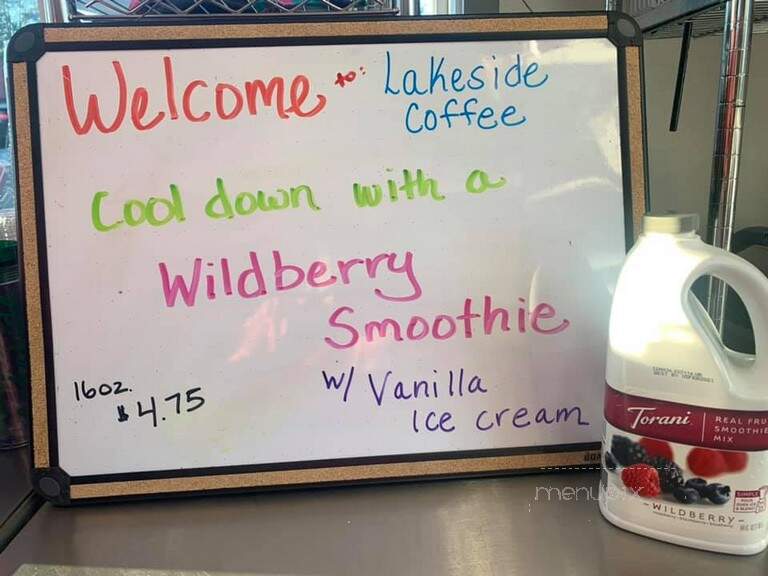 Welcome to: Lakeside
Coffee
Cool down with a
Wildberry
Smoothie
w/ Vanilla
Ice cream
16oz.
$4.75
Torani
REAL FRU
SMOOTHIE
MIX
WILDBERRY
menupix